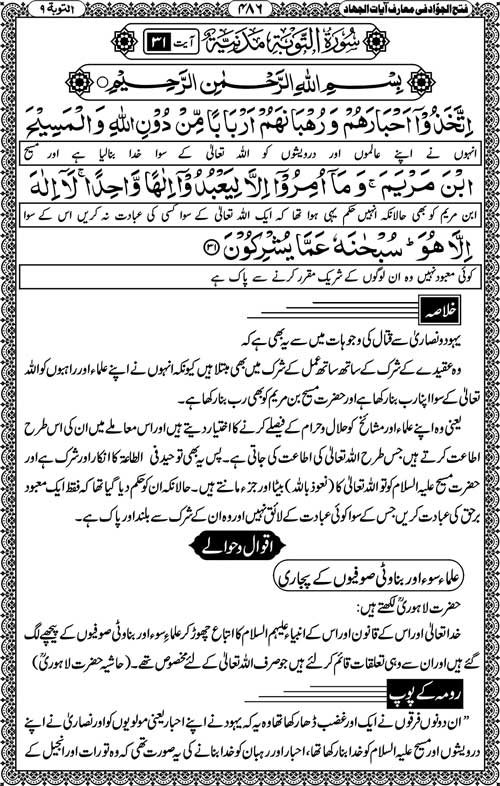 فتح الجوّاد فی معارف آیات الجهاد
۴۸۶
التوبة ۹
سُوْرَةُ التَّوْبَةِ مَدَنِيَّةٌ آیت ۳۱
بِسْمِ اللهِ الرَّحْمٰنِ الرَّحِيْمِ
اِتَّخَذُوْۤا اَحْبَارَهُمْ وَرُهْبَانَهُمْ اَرْبَابًا مِّنْ دُوْنِ اللهِ وَالْمَسِيْحَ
انہوں نے اپنے عالموں اور درویشوں کو اللہ تعالیٰ کے سوا خدا بنالیا ہے اور مسیح
ابْنَ مَرْيَمَ ۚ وَمَاۤ اُمِرُوْۤا اِلَّا لِيَعْبُدُوْۤا اِلٰهًا وَّاحِدًا ۚ لَاۤ اِلٰهَ
ابن مریم کو بھی حالانکہ انہیں حکم یہی ہوا تھا کہ ایک اللہ تعالیٰ کے سوا کسی کی عبادت نہ کریں اس کے سوا
اِلَّا هُوَ ؕ سُبْحٰنَهٗ عَمَّا يُشْرِكُوْنَ ۳۱
کوئی معبود نہیں وہ ان لوگوں کے شریک مقرر کرنے سے پاک ہے
خلاصہ
یہود و نصاریٰ سے قتال کی وجوہات میں سے یہ بھی ہے کہ
وہ عقیدے کے شرک کے ساتھ ساتھ عمل کے شرک میں بھی مبتلا ہیں کیونکہ انہوں نے اپنے علماء اور راہبوں کو اللہ
تعالیٰ کے سوا اپنا رب بنا رکھا ہے اور حضرت مسیح بن مریم کو بھی رب بنا رکھا ہے۔
یعنی وہ اپنے علماء اور مشائخ کو حلال و حرام کے فیصلے کرنے کا اختیار دیتے ہیں اور اس معاملے میں ان کی اس طرح
اطاعت کرتے ہیں جس طرح اللہ تعالیٰ کی اطاعت کی جاتی ہے۔ پس یہ بھی توحید فی الطاعۃ کا انکار اور شرک ہے اور
حضرت مسیح علیہ السلام کو تو اللہ تعالیٰ کا (نعوذ باللہ) بیٹا اور جزء مانتے ہیں۔ حالانکہ ان کو حکم دیا گیا تھا کہ فقط ایک معبود
برحق کی عبادت کریں جس کے سوا کوئی عبادت کے لائق نہیں اور وہ ان کے شرک سے بلند اور پاک ہے۔
اقوال و حوالے
علماء سوء اور بناوٹی صوفیوں کے پجاری
حضرت لاہوریؒ لکھتے ہیں:
خدا تعالیٰ اور اس کے قانون اور اس کے انبیاء علیہم السلام کا اتباع چھوڑ کر علماءِ سوء اور بناوٹی صوفیوں کے پیچھے لگ
گئے ہیں اور ان سے وہی تعلقات قائم کر لئے ہیں جو صرف اللہ تعالیٰ کے لئے مخصوص تھے۔ (حاشیہ حضرت لاہوریؒ)
رومہ کے پوپ
”ان دونوں فرقوں نے ایک اور غضب ڈھا رکھا تھا وہ یہ کہ یہود نے اپنے احبار یعنی مولویوں کو اور نصاریٰ نے اپنے
درویشوں اور مسیح علیہ السلام کو خدا بنا رکھا تھا، احبار اور رہبان کو خدا بنانے کی یہ صورت تھی کہ وہ تورات اور انجیل کے